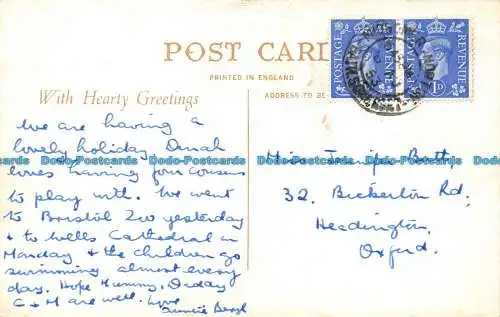 POST CARD
PRINTED IN ENGLAND
With Hearty Greetings
ADDRESS TO BE
POSTAGE REVENUE
POSTAGE REVENUE
1D
We are having a
lovely holiday. Denah
loves having four cousins
to play with. We went
to Bristol Zoo yesterday
& to Wells Cathedral on
Monday & the children go
swimming almost every
day. Hope Mummy, Daddy
C & M are well. Love
Auntie Beryl
Miss Batts,
32, Bickerton Rd,
Headington,
Oxford.
Dodo-Postcards Dodo-Postcards Dodo-Postcards Dodo-Postcards
Dodo-Postcards Dodo-Postcards Dodo-Postcards Dodo-Postcards
Dodo-Postcards Dodo-Postcards Dodo-Postcards Dodo-Postcards